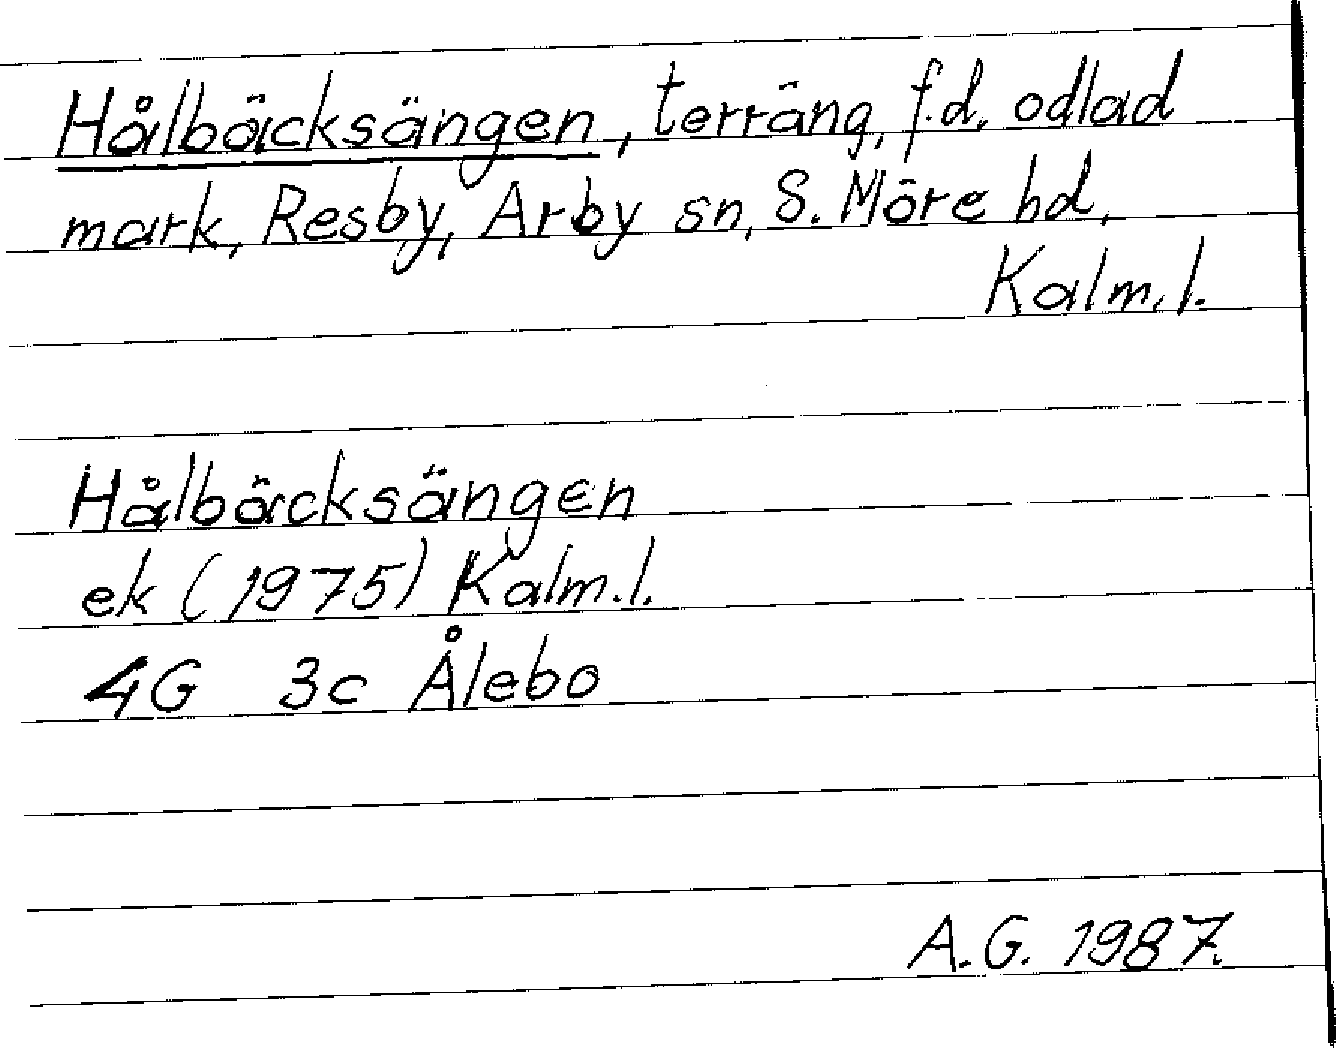 Hålbäcksängen, terräng, f.d. odlad
mark, Resby, Arby sn, S. Möre hd,
Kalm.l.
Hålbäcksängen
ek (1975) Kalm.l.
4G 3c Ålebo
A.G. 1987.